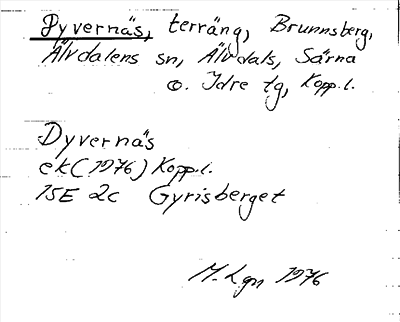 Dyvernäs, terräng, Brunnsberg,
Älvdalens sn, Älvdals, Särna
o. Idre tg, Kopp.l.
Dyvernäs
ek (1976) Kopp.l.
15E 2c Gyrisberget
M. Lgn 1976